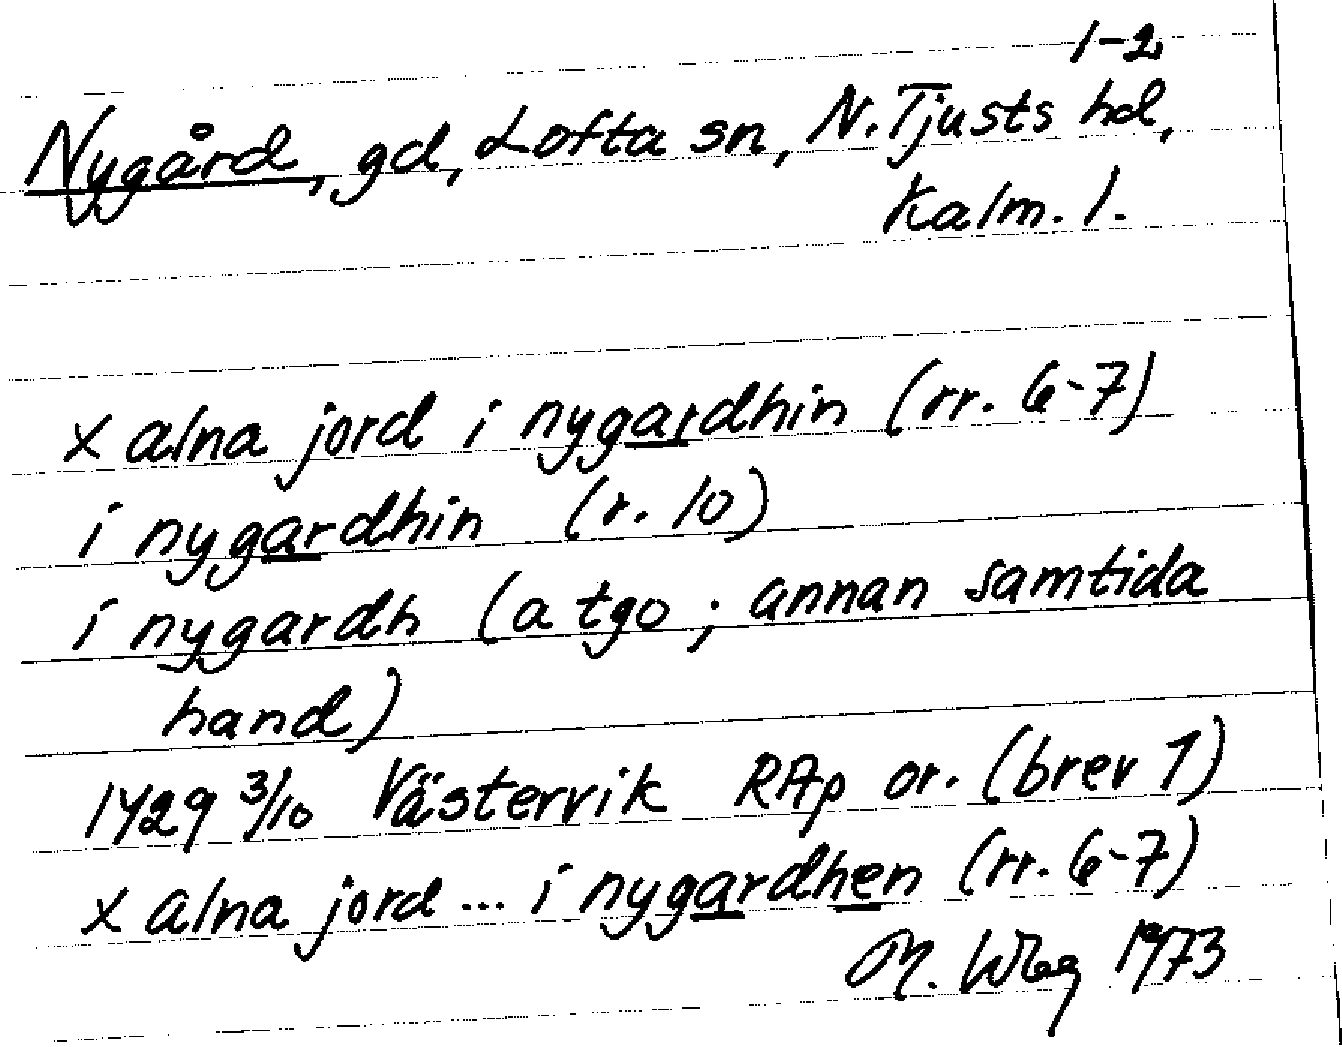 1-2
Nygård, gd, Lofta sn, N. Tjusts hd,
Kalm. l.
x alna jord i nygardhin (rr. 6-7)
i nygardhin (r. 10)
i nygardh (a tgo; annan samtida
hand)
1429 3/10 Västervik RAp or. (brev 1)
x alna jord ... i nygardhen (rr. 6-7)
M. 1973